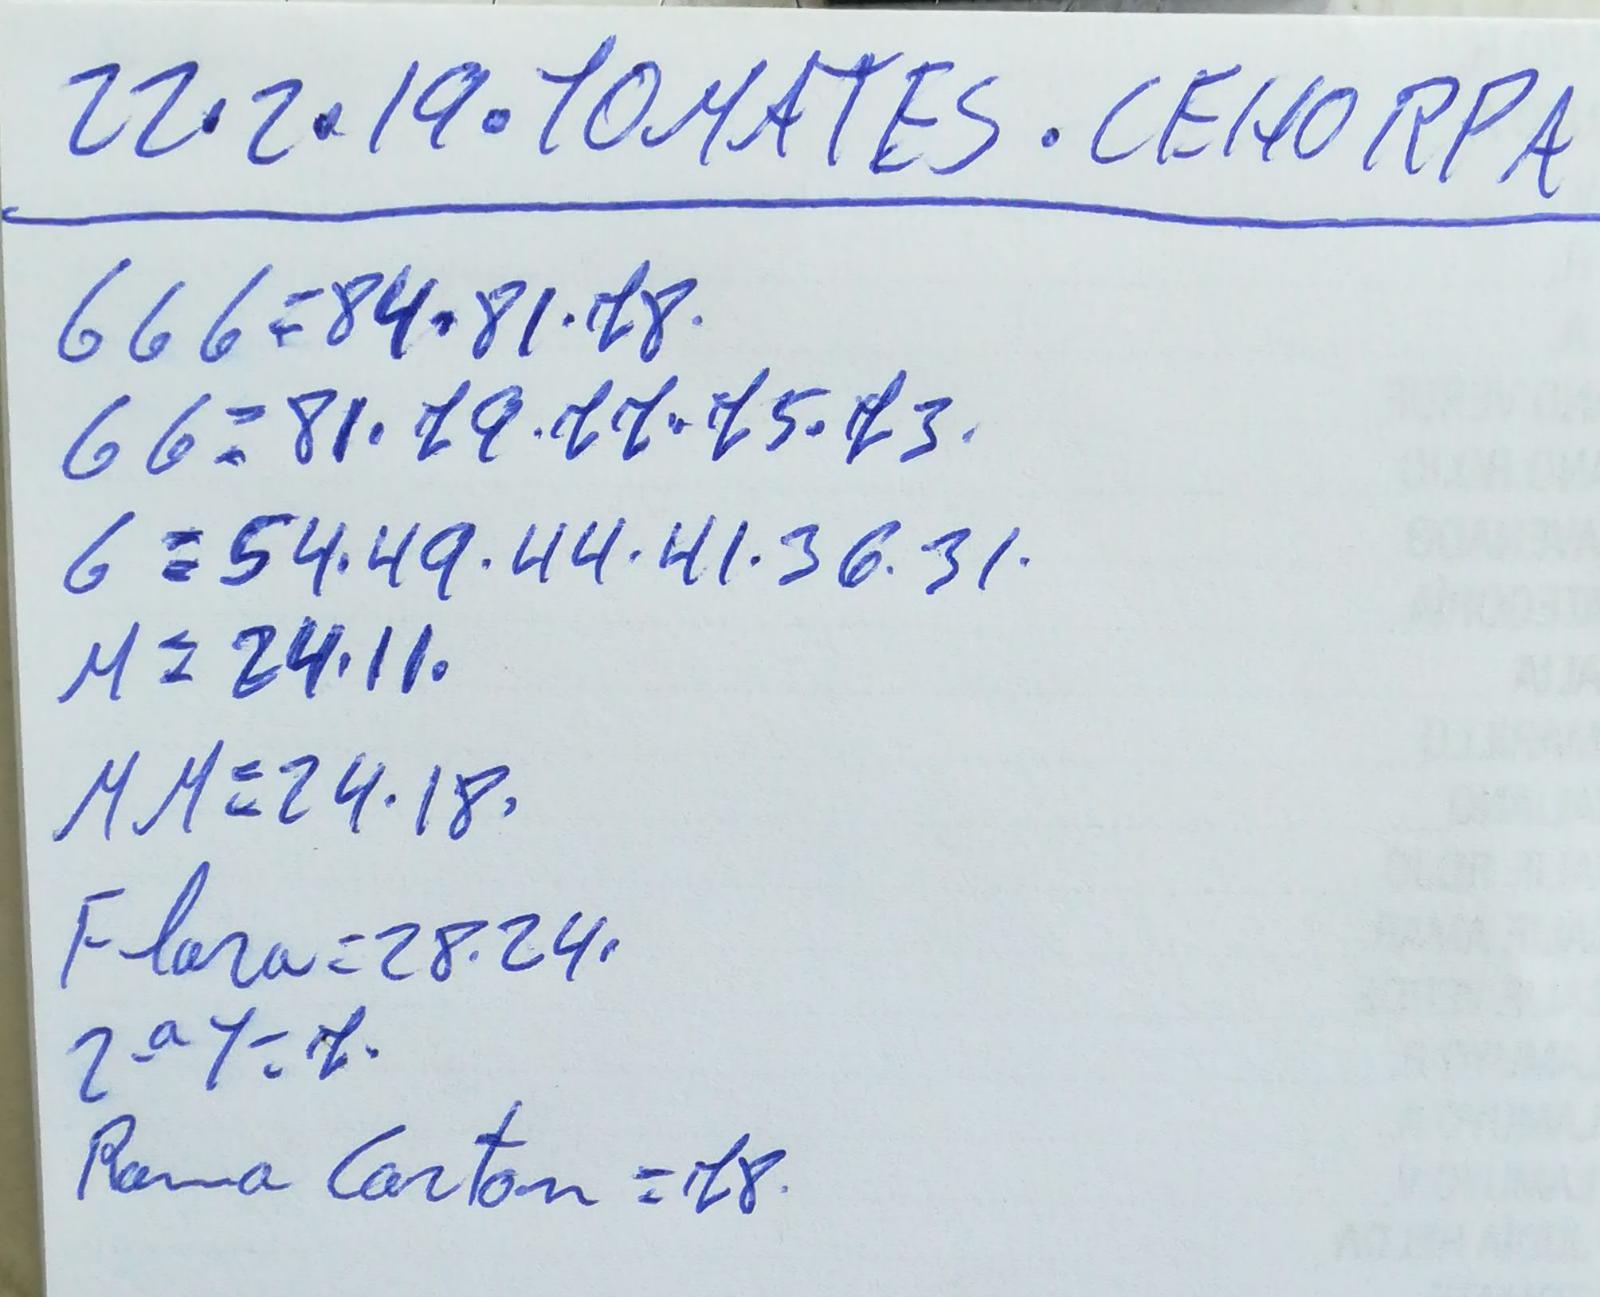 22.2.19.TOMATES.CEHORPA
GGG=84.81.78.
GG=81.79.77.75.73.
G=54.49.44.41.36.31.
M=24.11.
MM=24.18.
Flora=28.24.
2ªT=7.
Rama Carton=78.